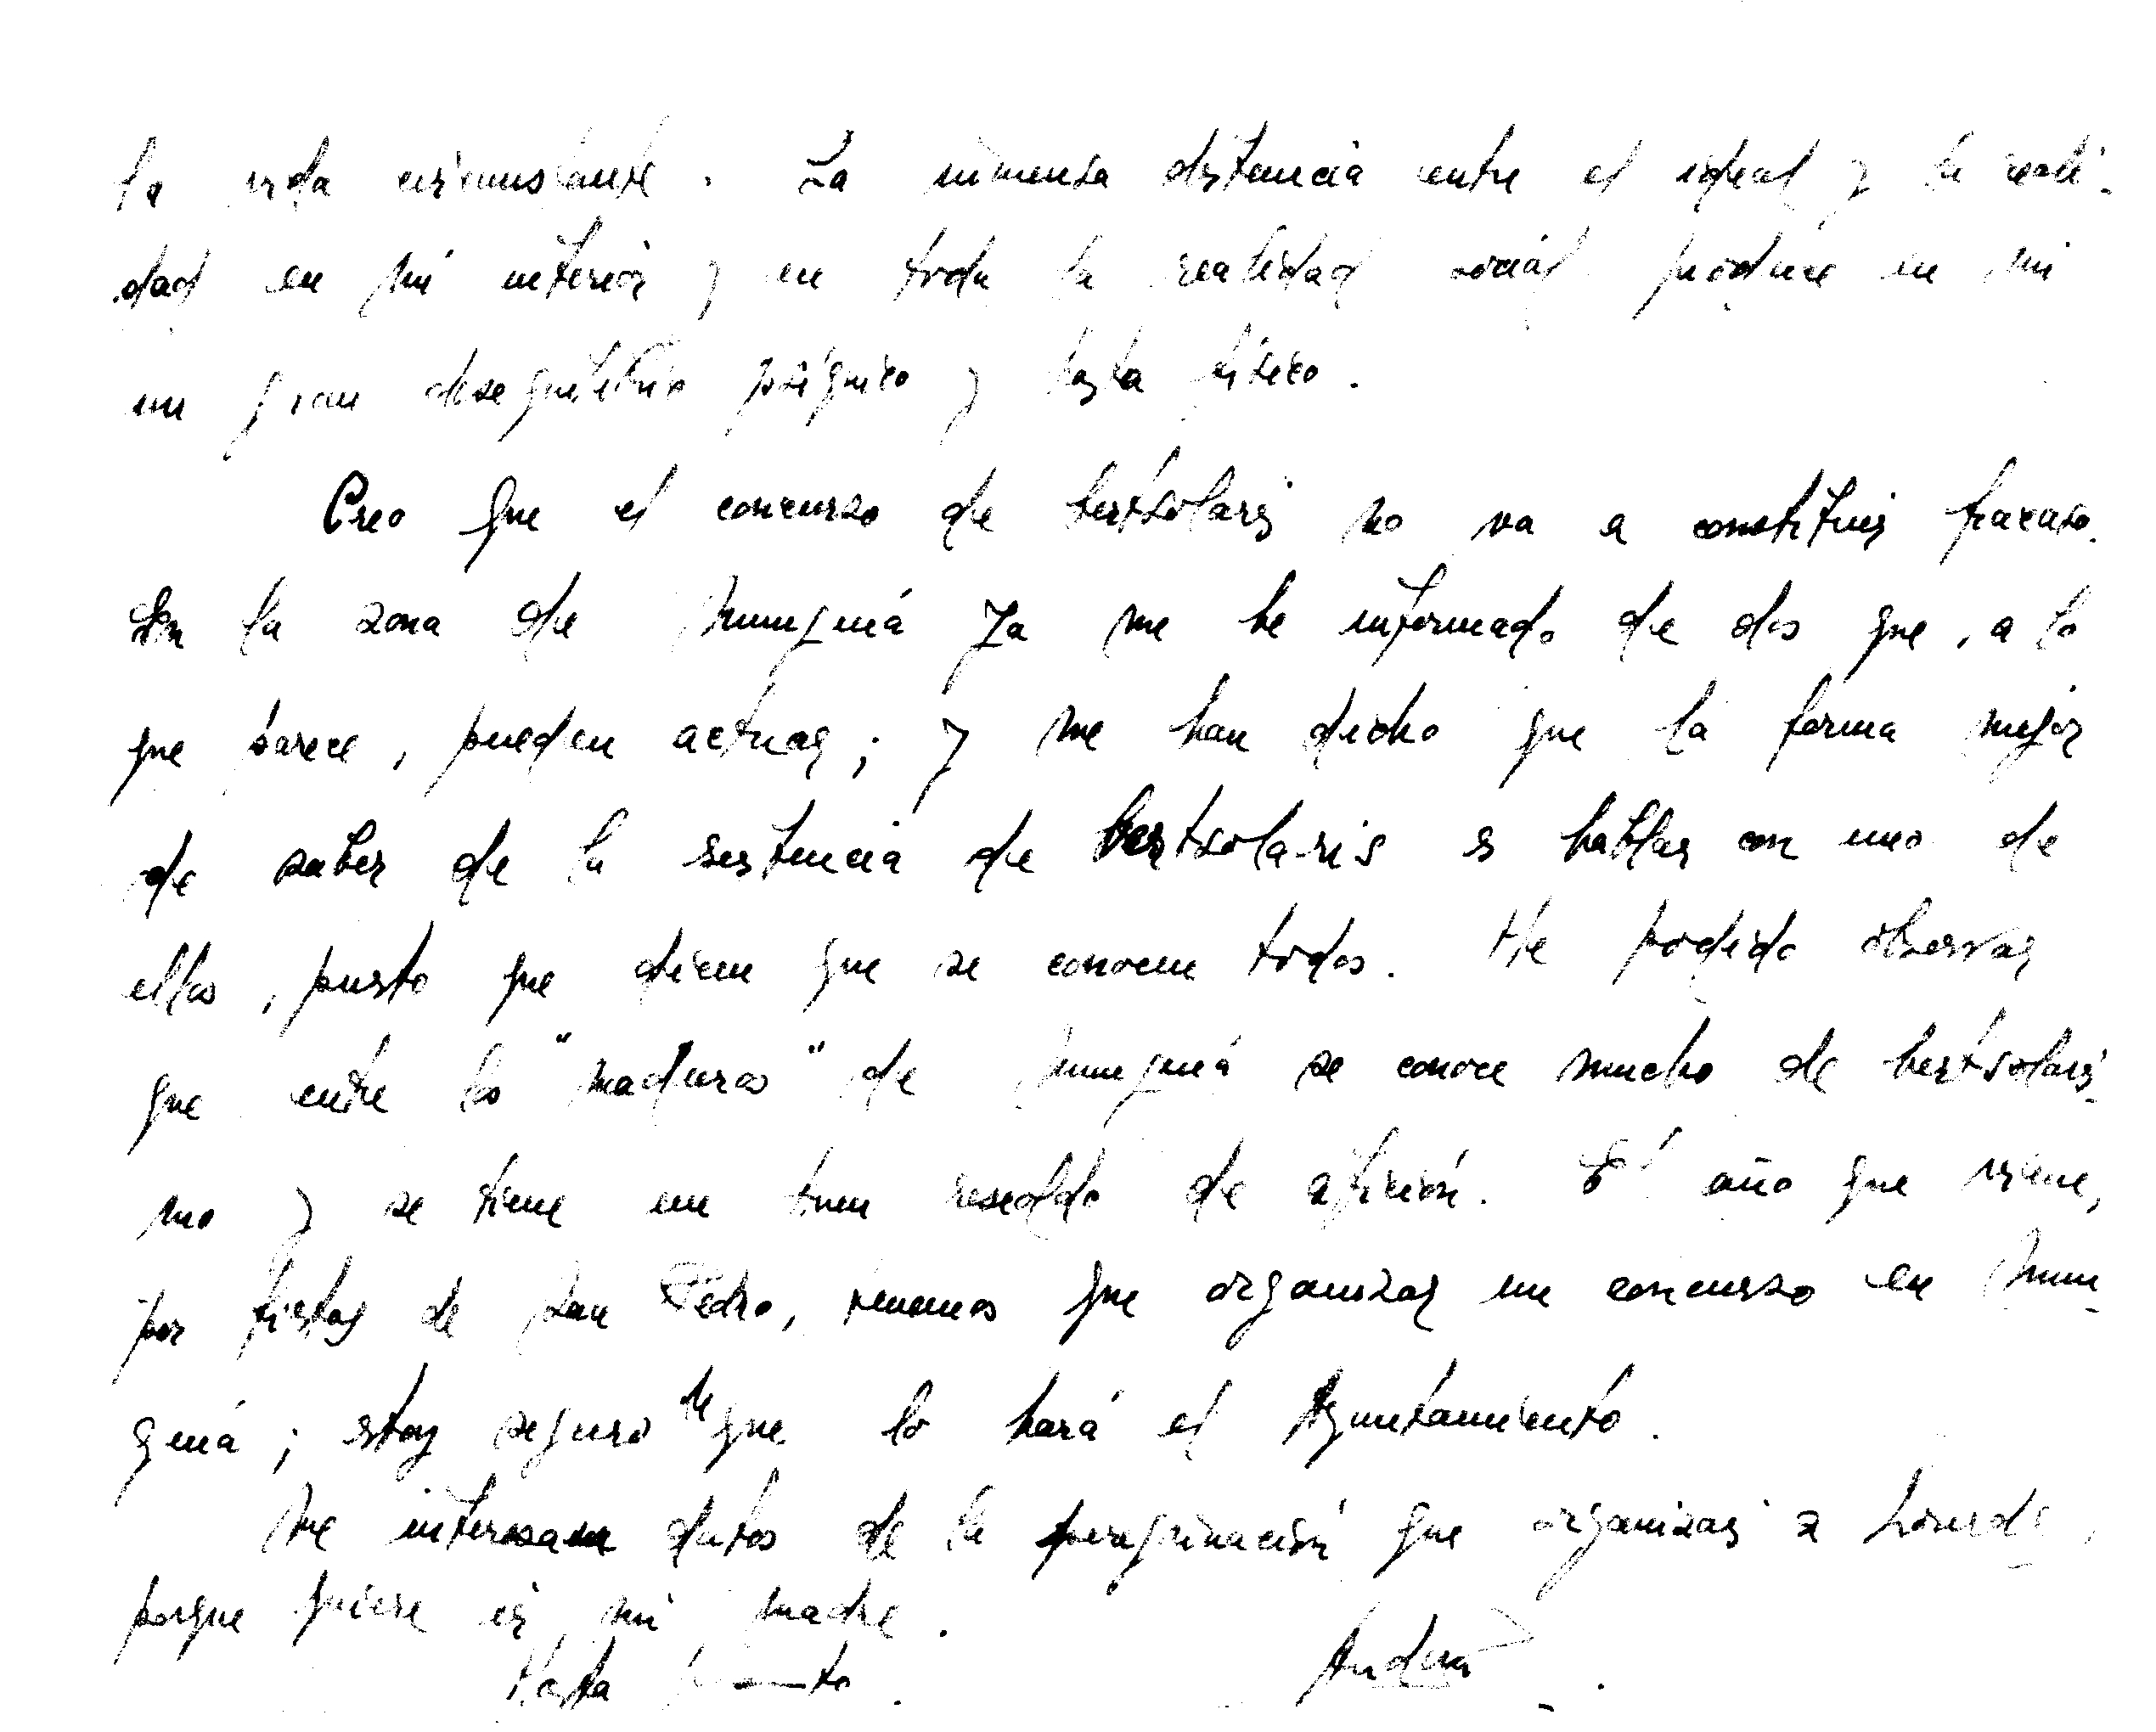 la vida circunstante. La inmensa distancia entre el ideal y la reali-
dad en mi interior y en toda la realidad social produce en mi
un gran desequilibrio psíquico y hasta físico.
Creo que el concurso de bertsolaris no va a constituir fracaso.
En la zona de Munguía ya me he informado de dos que, a lo
que parece, pueden actuar; y me han dicho que la forma mejor
de saber de la existencia de bertsolaris es hablar con uno de
ellos, puesto que dicen que se conocen todos. He podido observar
que entre los "maduros" de Munguía se conoce mucho de bertsolaris-
mo y se tiene un buen rescoldo de afición. El año que viene,
por fiestas de San Pedro, tenemos que organizar un concurso en Mun-
guía; estoy seguro de que lo hará el Ayuntamiento.
Me interesan datos de la peregrinación que organizas a Lourdes,
porque quiere ir mi madre.
Hasta pronto. Andrés